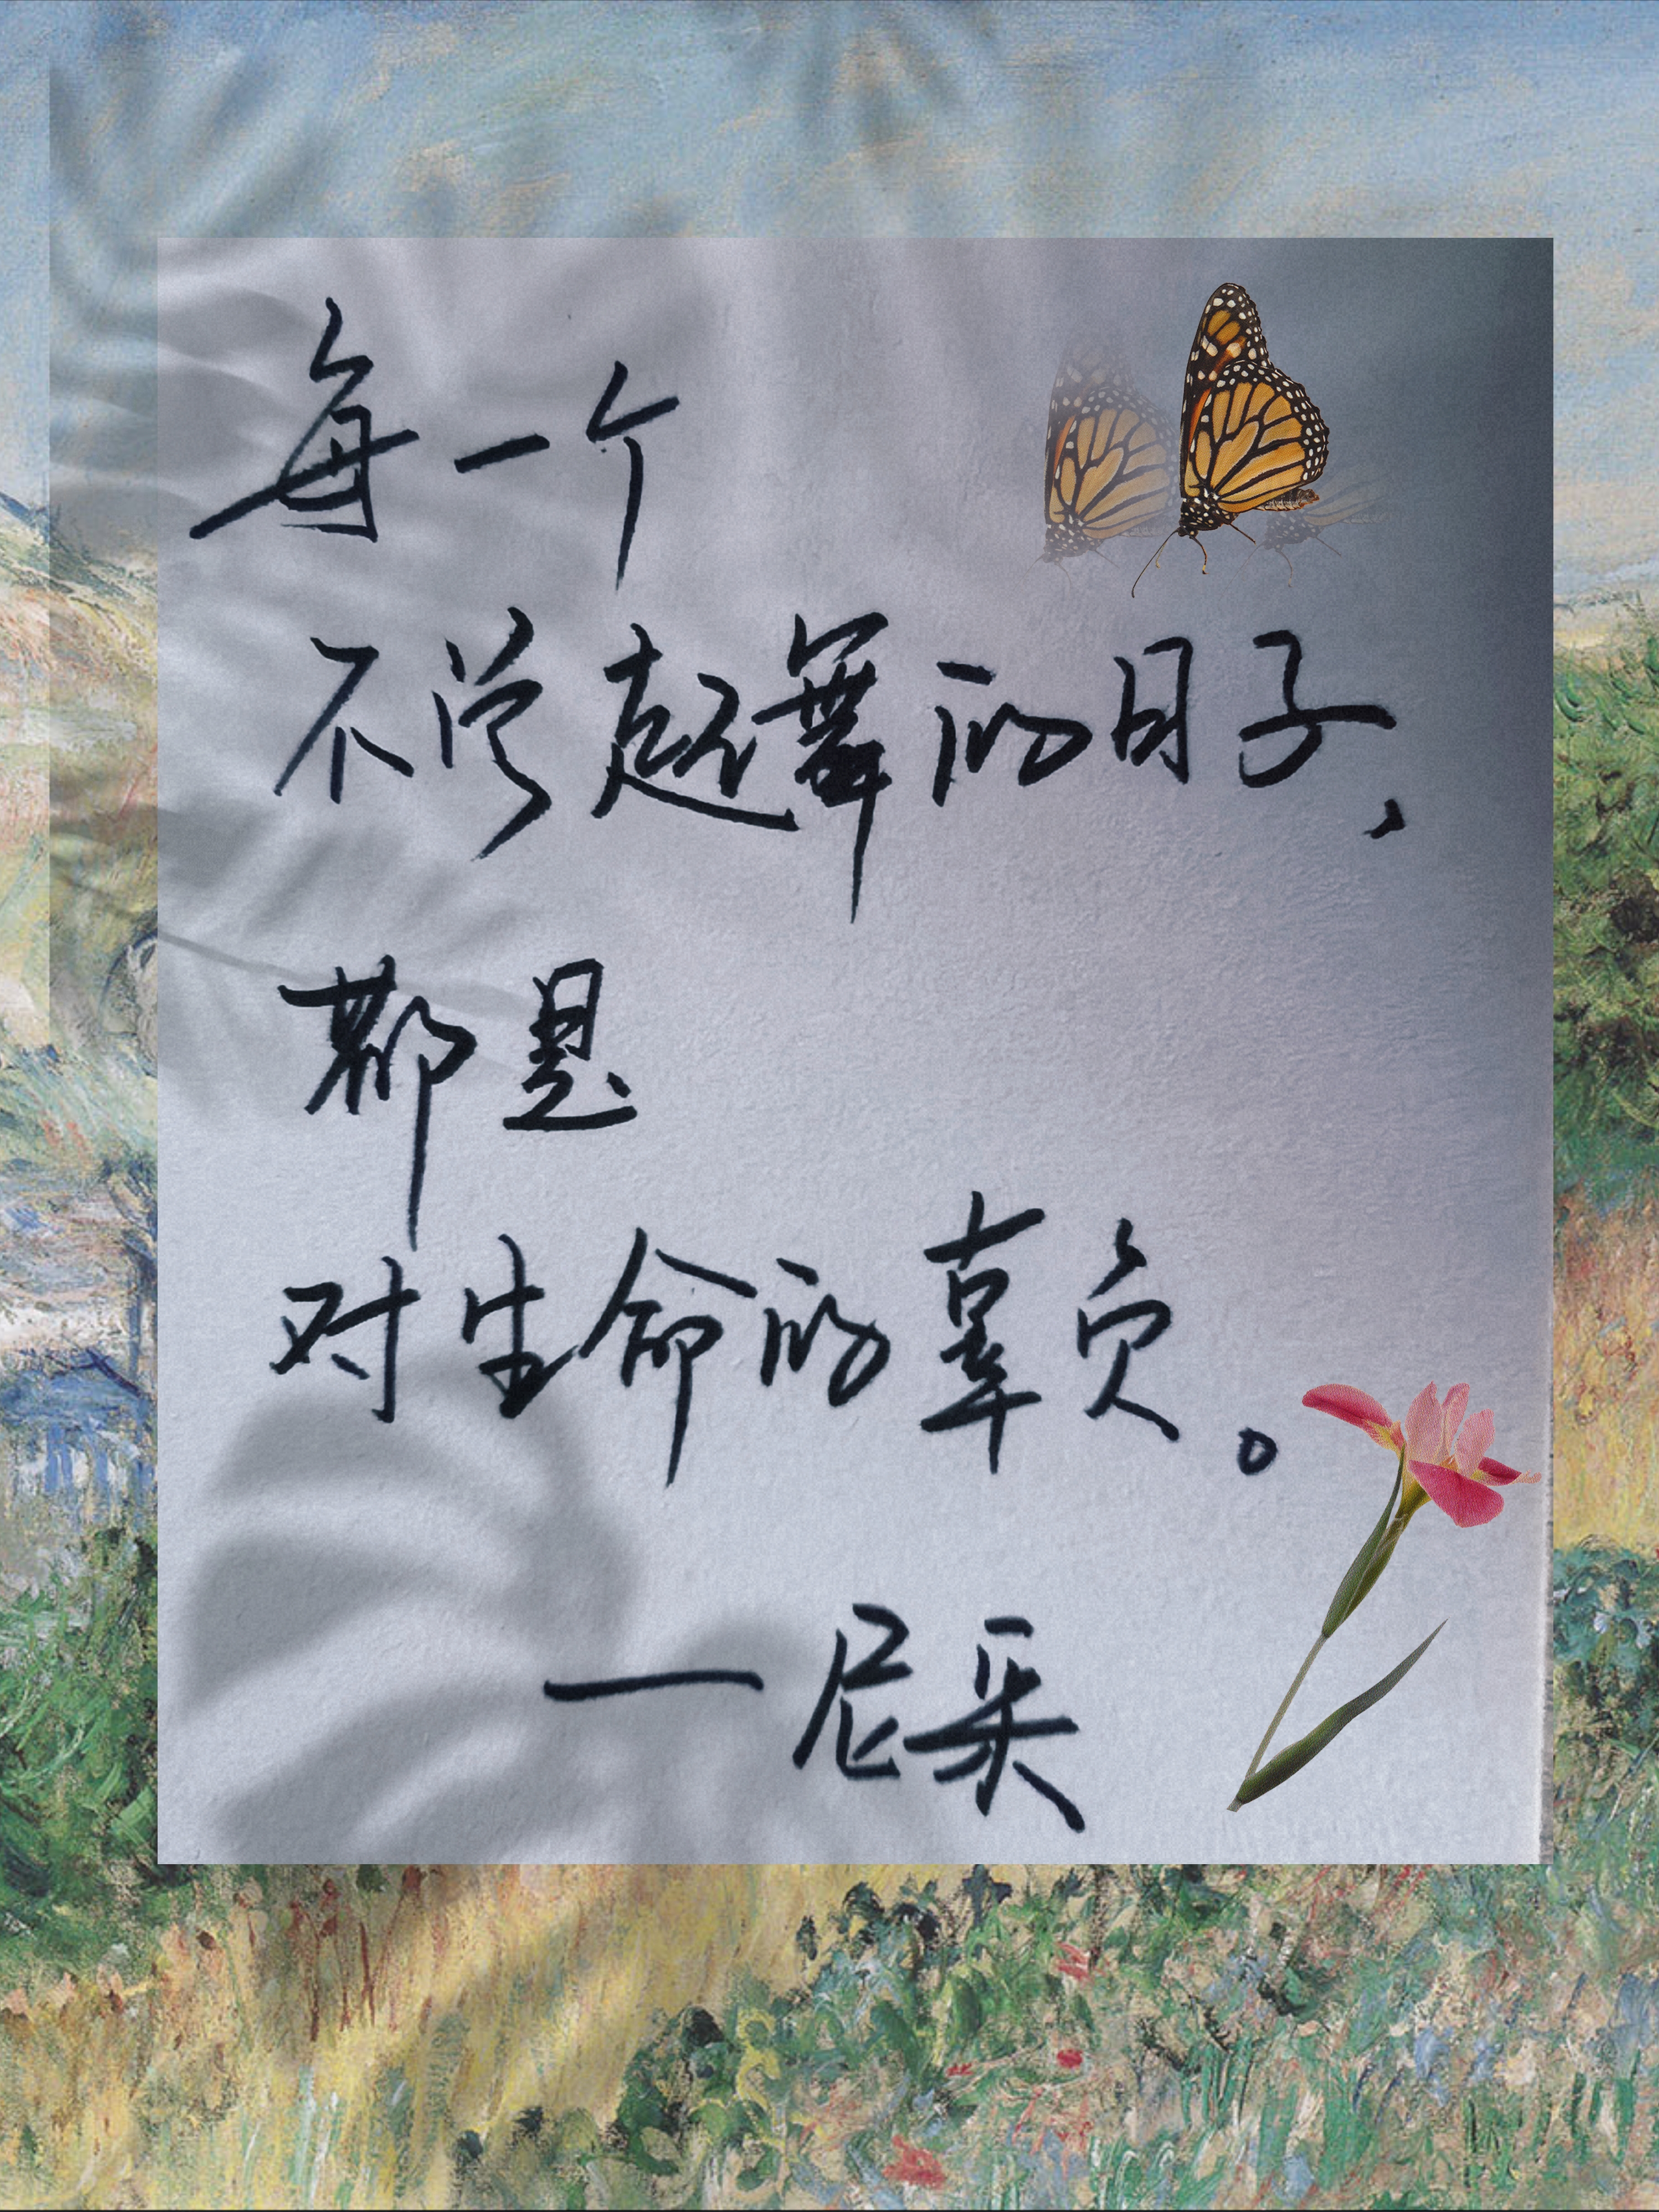 每一个
不曾起舞的日子、
都是
对生命的辜负。
一尼采